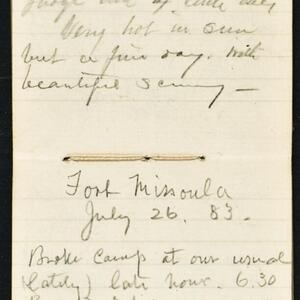 Very hot in sun
but a fine day. With
beautiful scenery —
Fort Missoula
July 26. 83.
Broke camp at our usual
(lately) late hour. 6.30